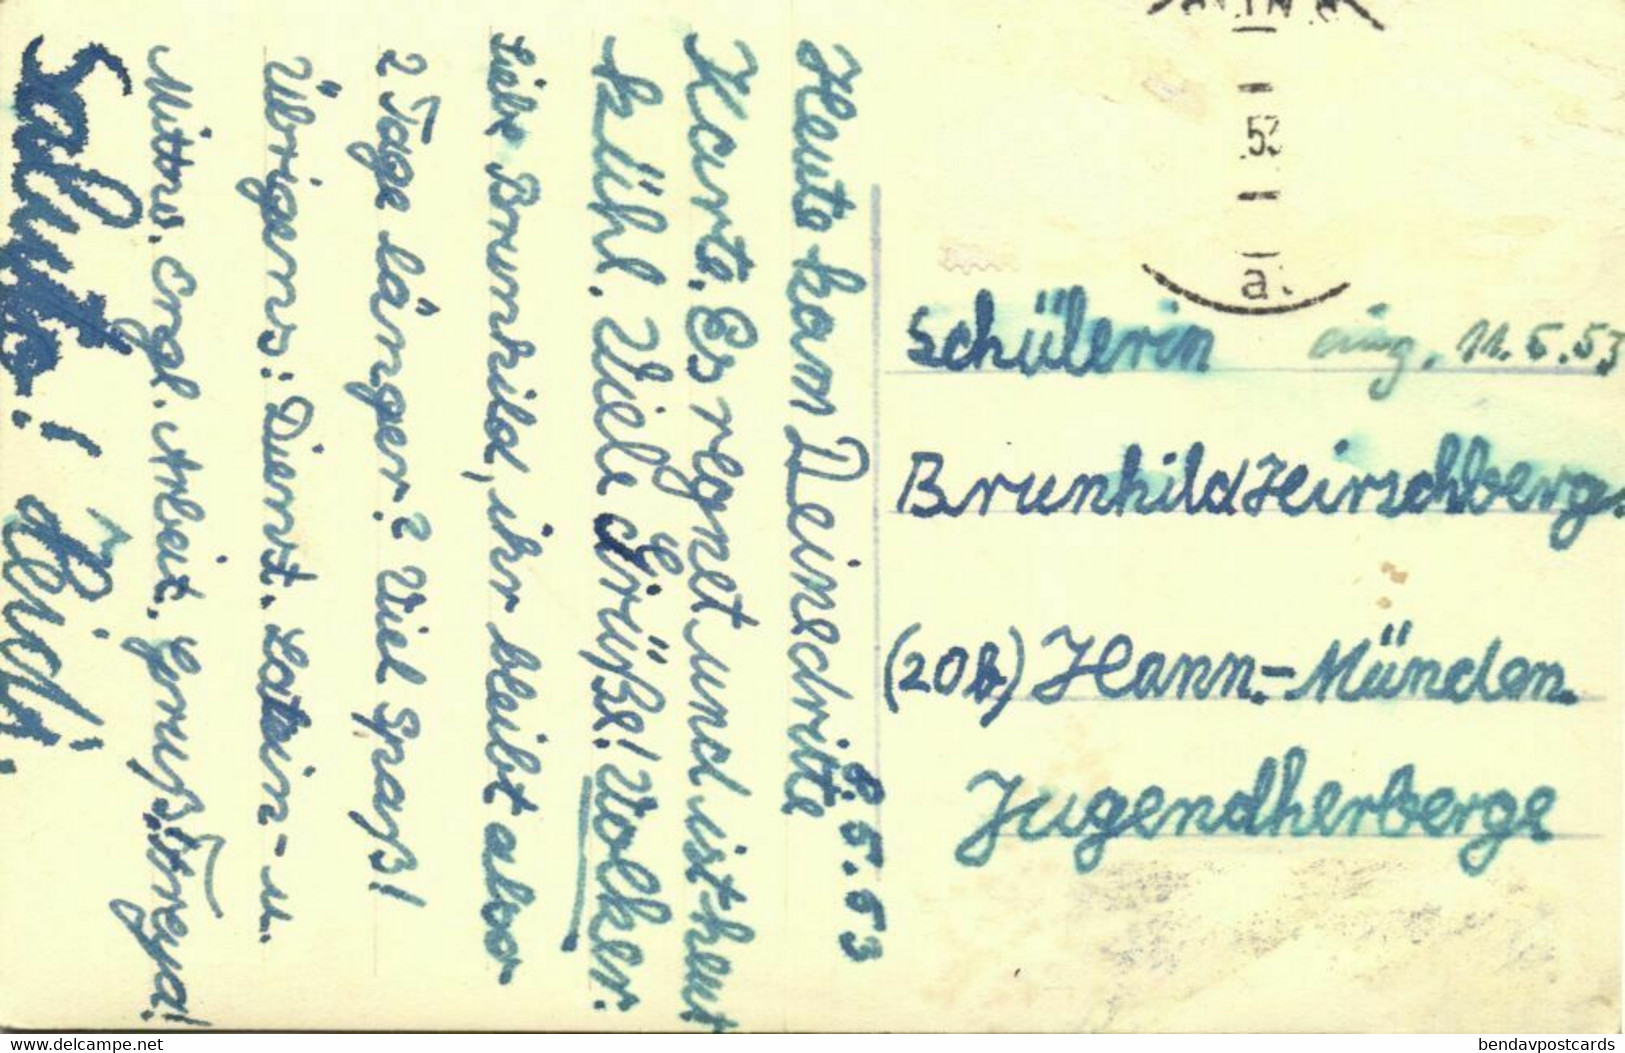 8.5.53
Heute kam Deine dritte
Karte. Es regnet und ist heut
kühl. Viele Grüße! Volker.
Liebe Brunhild, ihr bleibt also
2 Tage länger? Viel Spaß!
Übrigens: Dienst. Latein- u.
Mittw. Engl. Arbeit. Gruß,
Salute! Heidi.
53
a.
Schülerin eing. 11.5.53
Brunhild Hirschberg.
(20b) Hann.-Münden.
Jugendherberge
www.delcampe.net
bendavpostcards